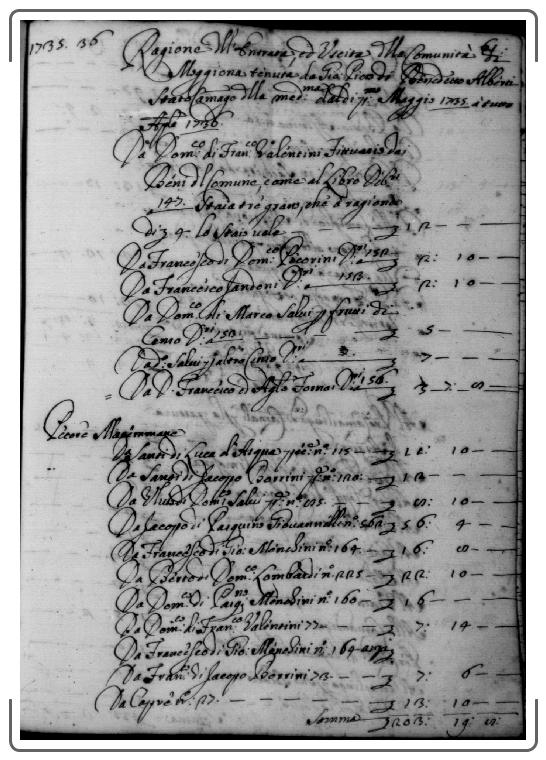 1735. 36
Ragione dll'Entrata, ed Uscita dlla Comunità di
Moggiona tenuta da Gio: Pico di Benedetto Alberti
Stato Camarlo dlla med:ma dal dì p:mo Maggio 1735 a tutto
Aple 1736
Da Dom:co di Fran:co Valentini Fittuario dei
Beni dl Comune, come al Libro
147. Staia tre grano, che a ragione
di 3 4 lo Staio vale 12
Da Francesco di Dom:co Pecorini D:ri 150 2: 10
Da Francesco Landoni D:ri 150 2: 10
Da Dom:co di Marco Salvi p frutti di
Censo D:ri 150 5
Salvi p altro Censo D:ri 7
Da P. Francesco di Fornai D:ri 156 3 7: 8
Pecore Maremmane
Da Santi di Luca d'Acqua n:o 115 11: 10
Da Santi di Jacopo Borrini n:o 120 12
Da di Dom:co Salvi n:o 85 8: 10
Da Jacopo di Pasquino Giovannelli n:o 562 56 4
Da Francesco di Gio: Menchini n:o 164 16: 8
Da Berto di Dom:co Lombardi n:o 225 22: 10
Da Dom:co di Menchini n:o 160 16
Da Dom:co di Fran:co Valentini 77 7: 14
Da Francesco di Gio: Menchini n:o 164
Da Fran:co di Jacopo Borrini 73 7: 6
Da Capre n:o 27 13: 10
Somma 203: 19: 8: